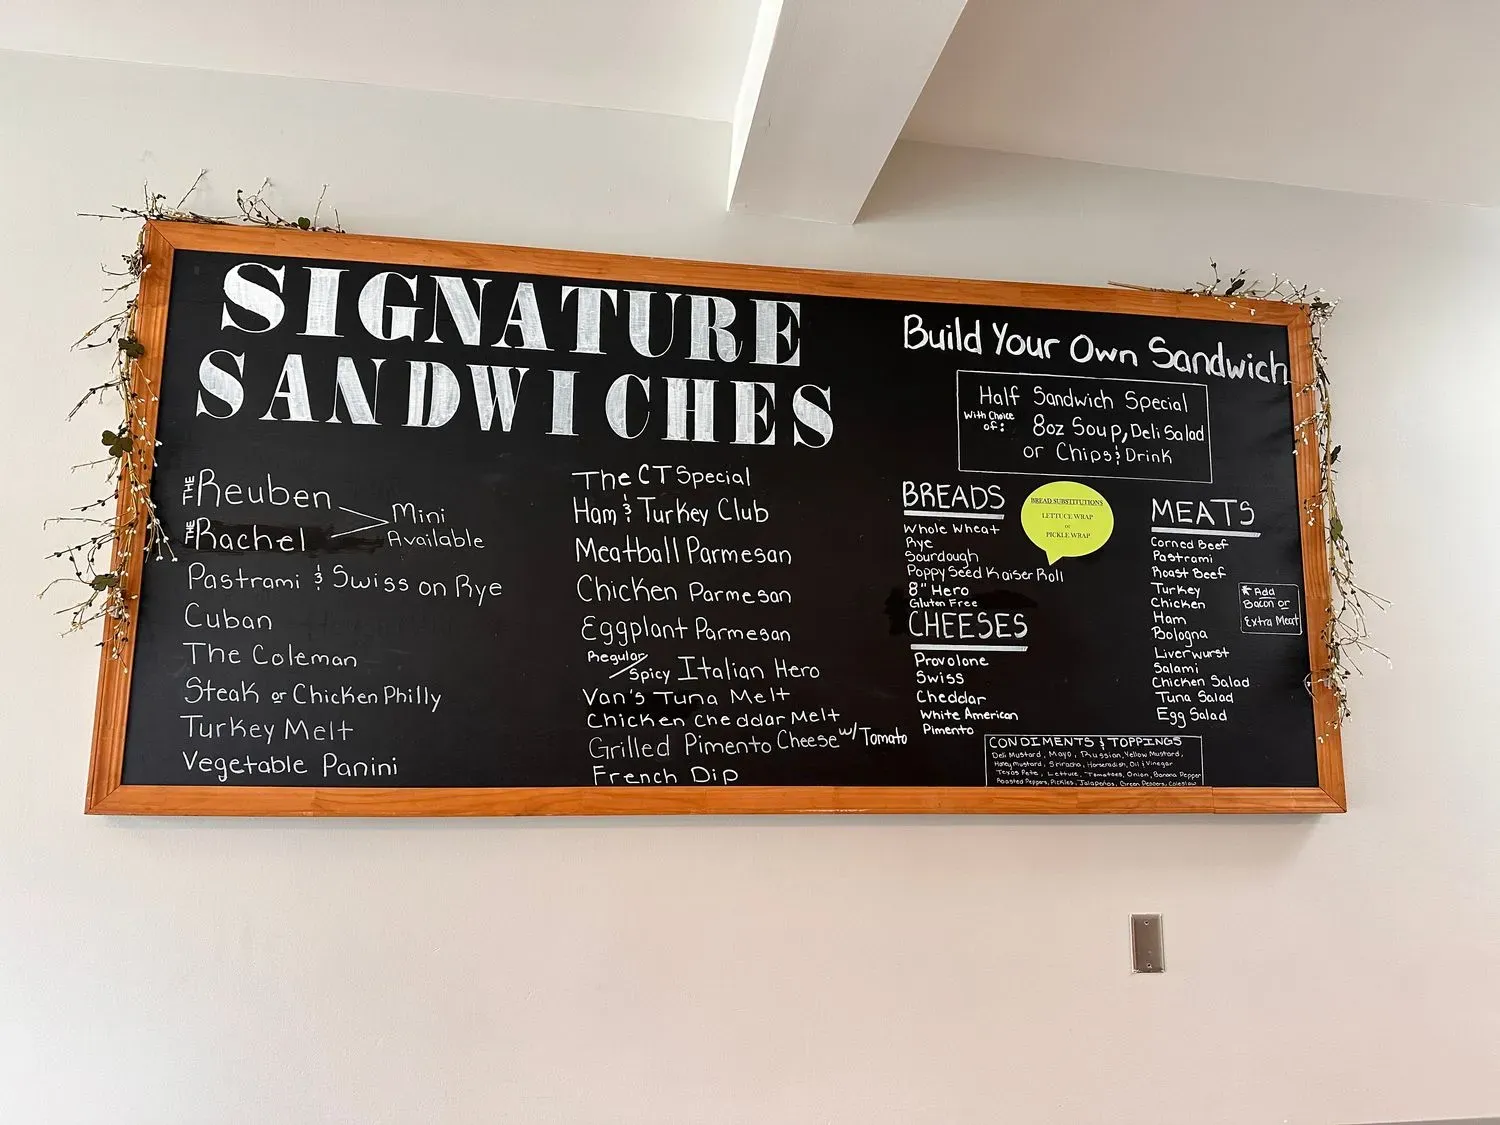 SIGNATURE
SANDWICHES
THE Reuben
THE Rachel
Mini
Available
Pastrami & Swiss on Rye
Cuban
The Coleman
Steak or Chicken Philly
Turkey Melt
Vegetable Panini
The CT Special
Ham & Turkey Club
Meatball Parmesan
Chicken Parmesan
Eggplant Parmesan
Regular/Spicy Italian Hero
Van's Tuna Melt
Chicken Cheddar Melt
Grilled Pimento Cheese w/ Tomato
French Dip
Build Your Own Sandwich
Half Sandwich Special
With Choice of: 8oz Soup, Deli Salad
or Chips & Drink
BREADS
Whole Wheat
Rye
Sourdough
Poppy Seed Kaiser Roll
8" Hero
Gluten Free
BREAD SUBSTITUTIONS
LETTUCE WRAP
or
PICKLE WRAP
CHEESES
Provolone
Swiss
Cheddar
White American
Pimento
MEATS
Corned Beef
Pastrami
Roast Beef
Turkey
Chicken
Ham
Bologna
Liverwurst
Salami
Chicken Salad
Tuna Salad
Egg Salad
* Add
Bacon or
Extra Meat
CONDIMENTS & TOPPINGS
Deli Mustard, Mayo, Russian, Yellow Mustard,
Honey Mustard, Sriracha, Horseradish, Oil & Vinegar
Texas Pete, Lettuce, Tomatoes, Onion, Banana Pepper
Roasted Peppers, Pickles, Jalapeños, Green Peppers, Coleslaw